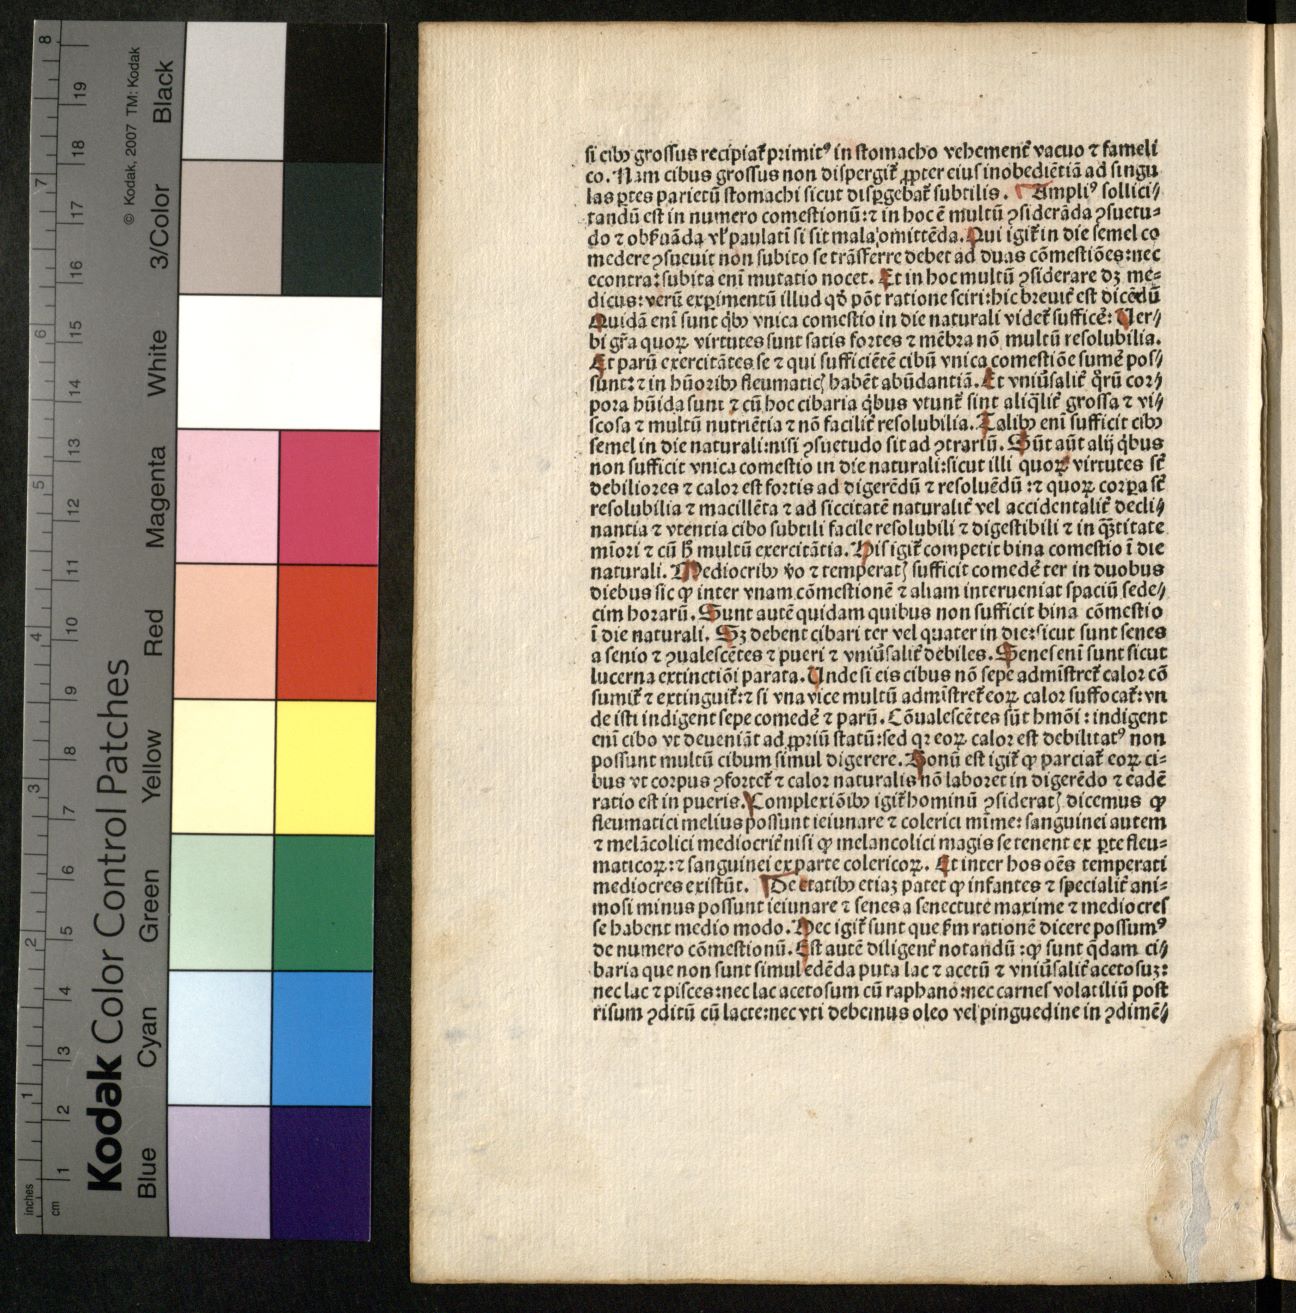 si cibꝰ grossus recipiat᷑ primitꝰ in stomacho vehement᷑ vacuo ⁊ fameli
co. Nam cibus grossus non dispergit᷑ ꝓpter eius inobediētiā ad singu
las ꝑtes parietū stomachi sicut dispꝑgebat᷑ subtilis. Ampliꝰ sollici⸗
tandū est in numero comestionū: ⁊ in hoc ē multū ꝯsiderāda ꝯsuetu⸗
do ⁊ obẜuāda vl̓ paulati̅ si sit mala omittēda. Qui igit᷑ in die semel co
medere ꝯsueuit non subito se trāsferre debet ad duas cōmestiōes: nec
econtra: subita enī mutatio nocet. Et in hoc multū ꝯsiderare dꝫ me⸗
dicus: verū exꝑimentū illud qd̓ pōt ratione sciri: hic breuit᷑ est dicēdū
Quidā enī sunt qͥbꝰ vnica comestio in die naturali videt᷑ sufficē: Ver⸗
bi gr̄a quoꝝ virtutes sunt satis fortes ⁊ mēbra nō multū resolubilia.
Et parū exercitātes se ⁊ qui sufficiētē cibū vnica comestiōe sume᷑ pos⸗
sunt: ⁊ in hūoribꝰ fleumaticꝭ habēt abūdantiā. Et vniūsalit᷑ qͦrū cor⸗
pora hūida sunt ⁊ cū hoc cibaria qͥbus vtunt᷑ sint aliqͣlit᷑ grossa ⁊ vi⸗
scosa ⁊ multū nutriētia ⁊ nō facilit᷑ resolubilia. Talibꝰ enī sufficit cibꝰ
semel in die naturali: nisi ꝯsuetudo sit ad ꝯtrariū. Sūt aūt alij qͥbus
non sufficit vnica comestio in die naturali: sicut illi quoꝝ virtutes st̄
debiliores ⁊ calor est fortis ad digerēdū ⁊ resoluēdū: ⁊ quoꝝ corꝑa st̄
resolubilia ⁊ macillēta ⁊ ad siccitatē naturalit᷑ vel accidentalit᷑ decli⸗
nantia ⁊ vtentia cibo subtili facile resolubili ⁊ digestibili ⁊ in qͣ̄titate
mīori ⁊ cū hͦ multū exercitātia. His igit᷑ competit bina comestio ī die
naturali. Mediocribꝰ v̓o ⁊ temperatꝭ sufficit comedē ter in duobus
diebus sic ꝙ inter vnam cōmestionē ⁊ aliam interueniat spaciū sede⸗
cim horarū. Sunt autē quidam quibus non sufficit bina cōmestio
ī die naturali. Sꝫ debent cibari ter vel quater in die: sicut sunt senes
a senio ⁊ ꝯualescētes ⁊ pueri ⁊ vniūsalit᷑ debiles. Senes enī sunt sicut
lucerna extinctiōi parata. Unde si eis cibus nō sepe admīstret᷑ calor cō
sumit᷑ ⁊ extinguit᷑: ⁊ si vna vice multū admīstret᷑ eoꝝ calor suffocat᷑: vn
de isti indigent sepe comedē ⁊ parū. Cōualescētes sūt hmōi: indigent
enī cibo vt deueniāt ad ꝓpriū statū: sed qꝛ eoꝝ calor est debilitatꝰ non
possunt multū cibum simul digerere. Bonū est igit᷑ ꝙ parciat᷑ eoꝝ ci⸗
bus vt corpus ꝯfortet᷑ ⁊ calor naturalis nō laboret in digerēdo ⁊ eadē
ratio est in pueris. Complexiōibꝰ igit᷑ hominū ꝯsideratꝭ dicemus ꝙ
fleumatici melius possunt ieiunare ⁊ colerici mīme: sanguinei autem
⁊ melācolici mediocrit᷑ nisi ꝙ melancolici magis se tenent ex ꝑte fleu⸗
maticoꝝ: ⁊ sanguinei ex parte colericoꝝ. Et inter hos oēs temperati
mediocres existūt. De etatibꝰ etiaꝫ patet ꝙ infantes ⁊ specialit᷑ ani⸗
mosi minus possunt ieiunare ⁊ senes a senectute maxime ⁊ mediocres
se habent medio modo. Hec igit᷑ sunt que ẜm rationē dicere possumꝰ
de numero cōmestionū. Est autē diligent᷑ notandū: ꝙ sunt qͥdam ci⸗
baria que non sunt simul edēda puta lac ⁊ acetū ⁊ vniūsalit᷑ acetosuꝫ:
nec lac ⁊ pisces: nec lac acetosum cū raphano: nec carnes volatiliū post
risum ꝯditū cū lacte: nec vti debemus oleo vel pinguedine in ꝯdimē⸗
Kodak Color Control Patches
© Kodak, 2007 TM: Kodak
Blue Cyan Green Yellow Red Magenta White 3/Color Black
inches 1 2 3 4 5 6 7 8
cm 1 2 3 4 5 6 7 8 9 10 11 12 13 14 15 16 17 18 19